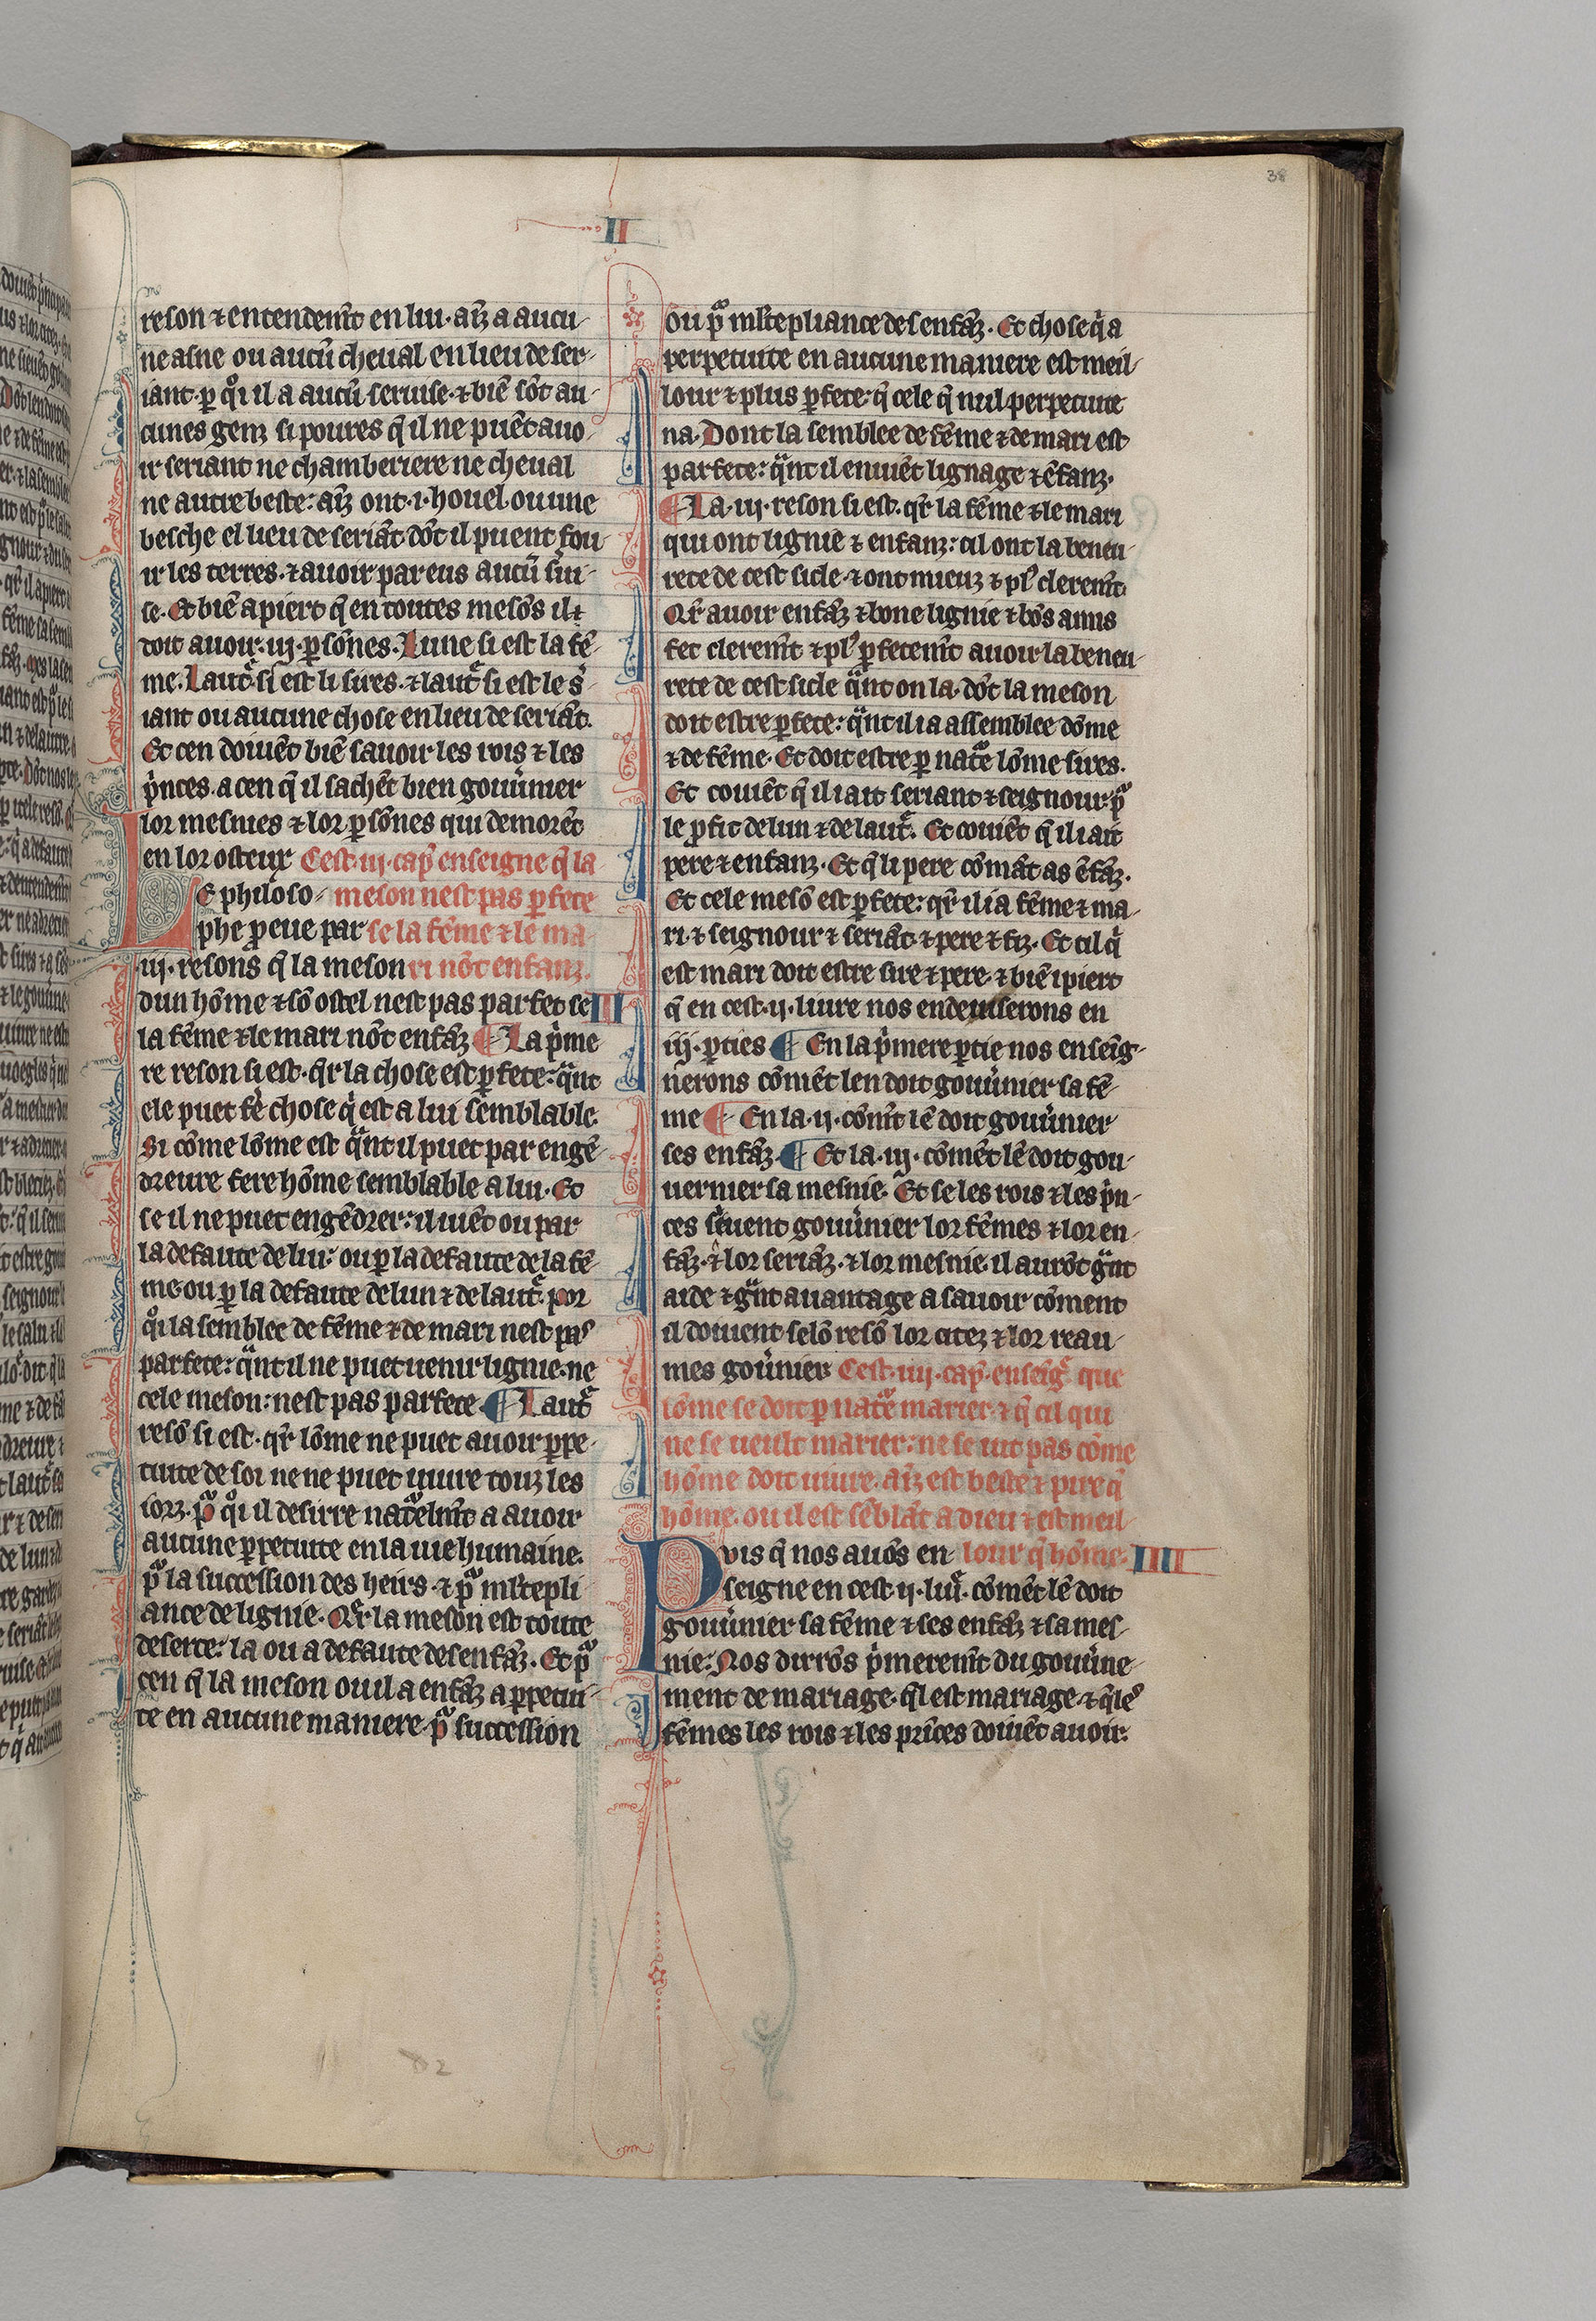 38
II
reson ⁊ entendem̄t en lui. aīz a aucu-
ne asne ou aucū cheual en lieu de ser-
iant. ꝑ qͦi il a aucū seruise. ⁊ biē sōt au-
cunes genz si poures q̄ il ne puēt auo-
ir seriant ne chamberiere ne cheual
ne autre beste: aīz ont .i. houel ou une
besche el lieu de seriāt dōt il puent fou-
ir les terres. ⁊ auoir par eus aucū sui-
se. Et biē apiert q̄ en toutes mesōs il ⁊
doit auoir .iij. ꝑsōnes. Lune si est la fē-
me. Laut̄ si est li sires. ⁊ laut̄ si est le s̄-
iant ou aucune chose en lieu de seriāt.
Et cen doiuēt biē sauoir les rois ⁊ les
pͥnces. a cen q̄ il sachēt bien gouu̾nier
lor mesnies ⁊ lor ꝑsōnes qui demorēt
en lor osteux Cest .iij. cap̄ enseigne q̄ la
LE philoso- meson nest pas ꝑfete
phe ꝓeue par se la fēme ⁊ le ma-
.iij. resons q̄ la meson ri nōt enfanz.
dun hōme ⁊ sō ostel nest pas parfet se III
la fēme ⁊ le mari nōt enfāz ¶ La pͥme
re reson si est. qr̄ la chose est ꝑfete: qᵃ̄nt
ele puet fē chose qͥ est a lui semblable.
Si cōme lōme est qᵃ̄nt il puet par engē-
dreure fere hōme semblable a lui. Et
se il ne puet engēdrer: il uiēt ou par
la defaute de lui: ou ꝑ la defaute de la fē-
me. ou ꝑ la defaute de lun ⁊ de laut̄. por
qͦi la semblee de fēme ⁊ de mari nest pas
parfete: qᵃ̄nt il ne puet uenir lignie. ne
cele meson: nest pas parfete. ¶ Laut̄
resō si est. qr̄ lōme ne puet auoir ꝑpe-
tuite de soi ne ne puet uiure touz les
iorz. pᵃ qͦi il desirre natᵃelmt̄ a auoir
aucune ꝑpetuite en la uie humaine.
pᵃ la succession des heirs. ⁊ pᵃ ml̄tepli-
ance de lignie. Qr̄ la meson est toute
deserte: la ou a defaute des enfāz. Et pᵃ
cen q̄ la meson ou il a enfāz a ꝑpetui-
te en aucune maniere. pᵃ succession
ou pᵃ ml̄tepliance des enfāz. Et chose qͥ a
perpetuite en aucune maniere est meil-
lour ⁊ plus ꝑfete: q̄ cele q̄ nul perpetuite
na. Dont la semblee de fēme ⁊ de mari est
parfete: qᵃ̄nt il en uiēt lignage ⁊ ēfanz.
¶ La .iij. reson si est. qr̄ la fēme ⁊ le mari
qui ont lignie ⁊ enfanz: cil ont la beneu-
rete de cest sicle. ⁊ ont mieuz ⁊ plꝰ cleremt̄.
Qr̄ auoir enfāz ⁊ bone lignie ⁊ bōs amis
fet cleremt̄ ⁊ plꝰ ꝑfetemt̄ auoir la beneu-
rete de cest sicle qᵃ̄nt on la. dōt la meson
doit estre ꝑfete: qᵃ̄nt il i a assemblee dōme
⁊ de fēme. Et doit estre ꝑ natᵃe lōme sires.
Et couiēt q̄ il i ait seriant ⁊ seignour. pᵃ
le ꝓfit de lun ⁊ de laut̄. Et couiēt q̄ il i ait
pere ⁊ enfanz. Et q̄ li pere cōmāt as ēfāz.
Et cele mesō est ꝑfete: qr̄ il i a fēme ⁊ ma-
ri. ⁊ seignour ⁊ seriāt. ⁊ pere ⁊ fiz. Et cil qͥ
est mari doit estre sire ⁊ pere. ⁊ biē ipiert
q̄ en cest .ij. liure nos en deuiserons en
iij. ꝑties ¶ En la pͥmere ꝑtie nos enseig-
nerons cōmēt len doit gouu̾nier sa fē-
me ¶ En la .ij. cōmt̄ lē doit gouu̾nier
ses enfāz. ¶ Et la .iij. cōmēt lē doit gou-
uernier sa mesnie. Et se les rois ⁊ les pͥn-
ces seuent gouu̾nier lor fēmes ⁊ lor en-
fāz. ⁊ lor seriāz. ⁊ lor mesnie. il aurōt gᵃ̄nt
aide ⁊ gᵃ̄nt auantage a sauoir cōment
il doiuent selō resō lor citez ⁊ lor reau-
mes gou̾nier. Cest .iiij. cap̄. enseiḡ que
lōme se doit ꝑ natᵃe marier. ⁊ q̄ cil qui
ne se ueult marier: ne se uit pas cōme
hōme doit uiure. aīz est beste ⁊ pire q̄
hōme. ou il est sēblāt a dieu ⁊ est meil-
PVis q̄ nos auōs en- lour q̄ hōme. IIII
seigne en cest .ij. liu̾. cōmēt lē doit
gouu̾nier sa fēme ⁊ ses enfāz ⁊ sa mes-
nie: Nos dirrōs pͥmeremt̄ du gouu̾ne-
ment de mariage. q̄l est mariage. ⁊ q̄les
fēmes les rois ⁊ les prīces doiuēt auoir.